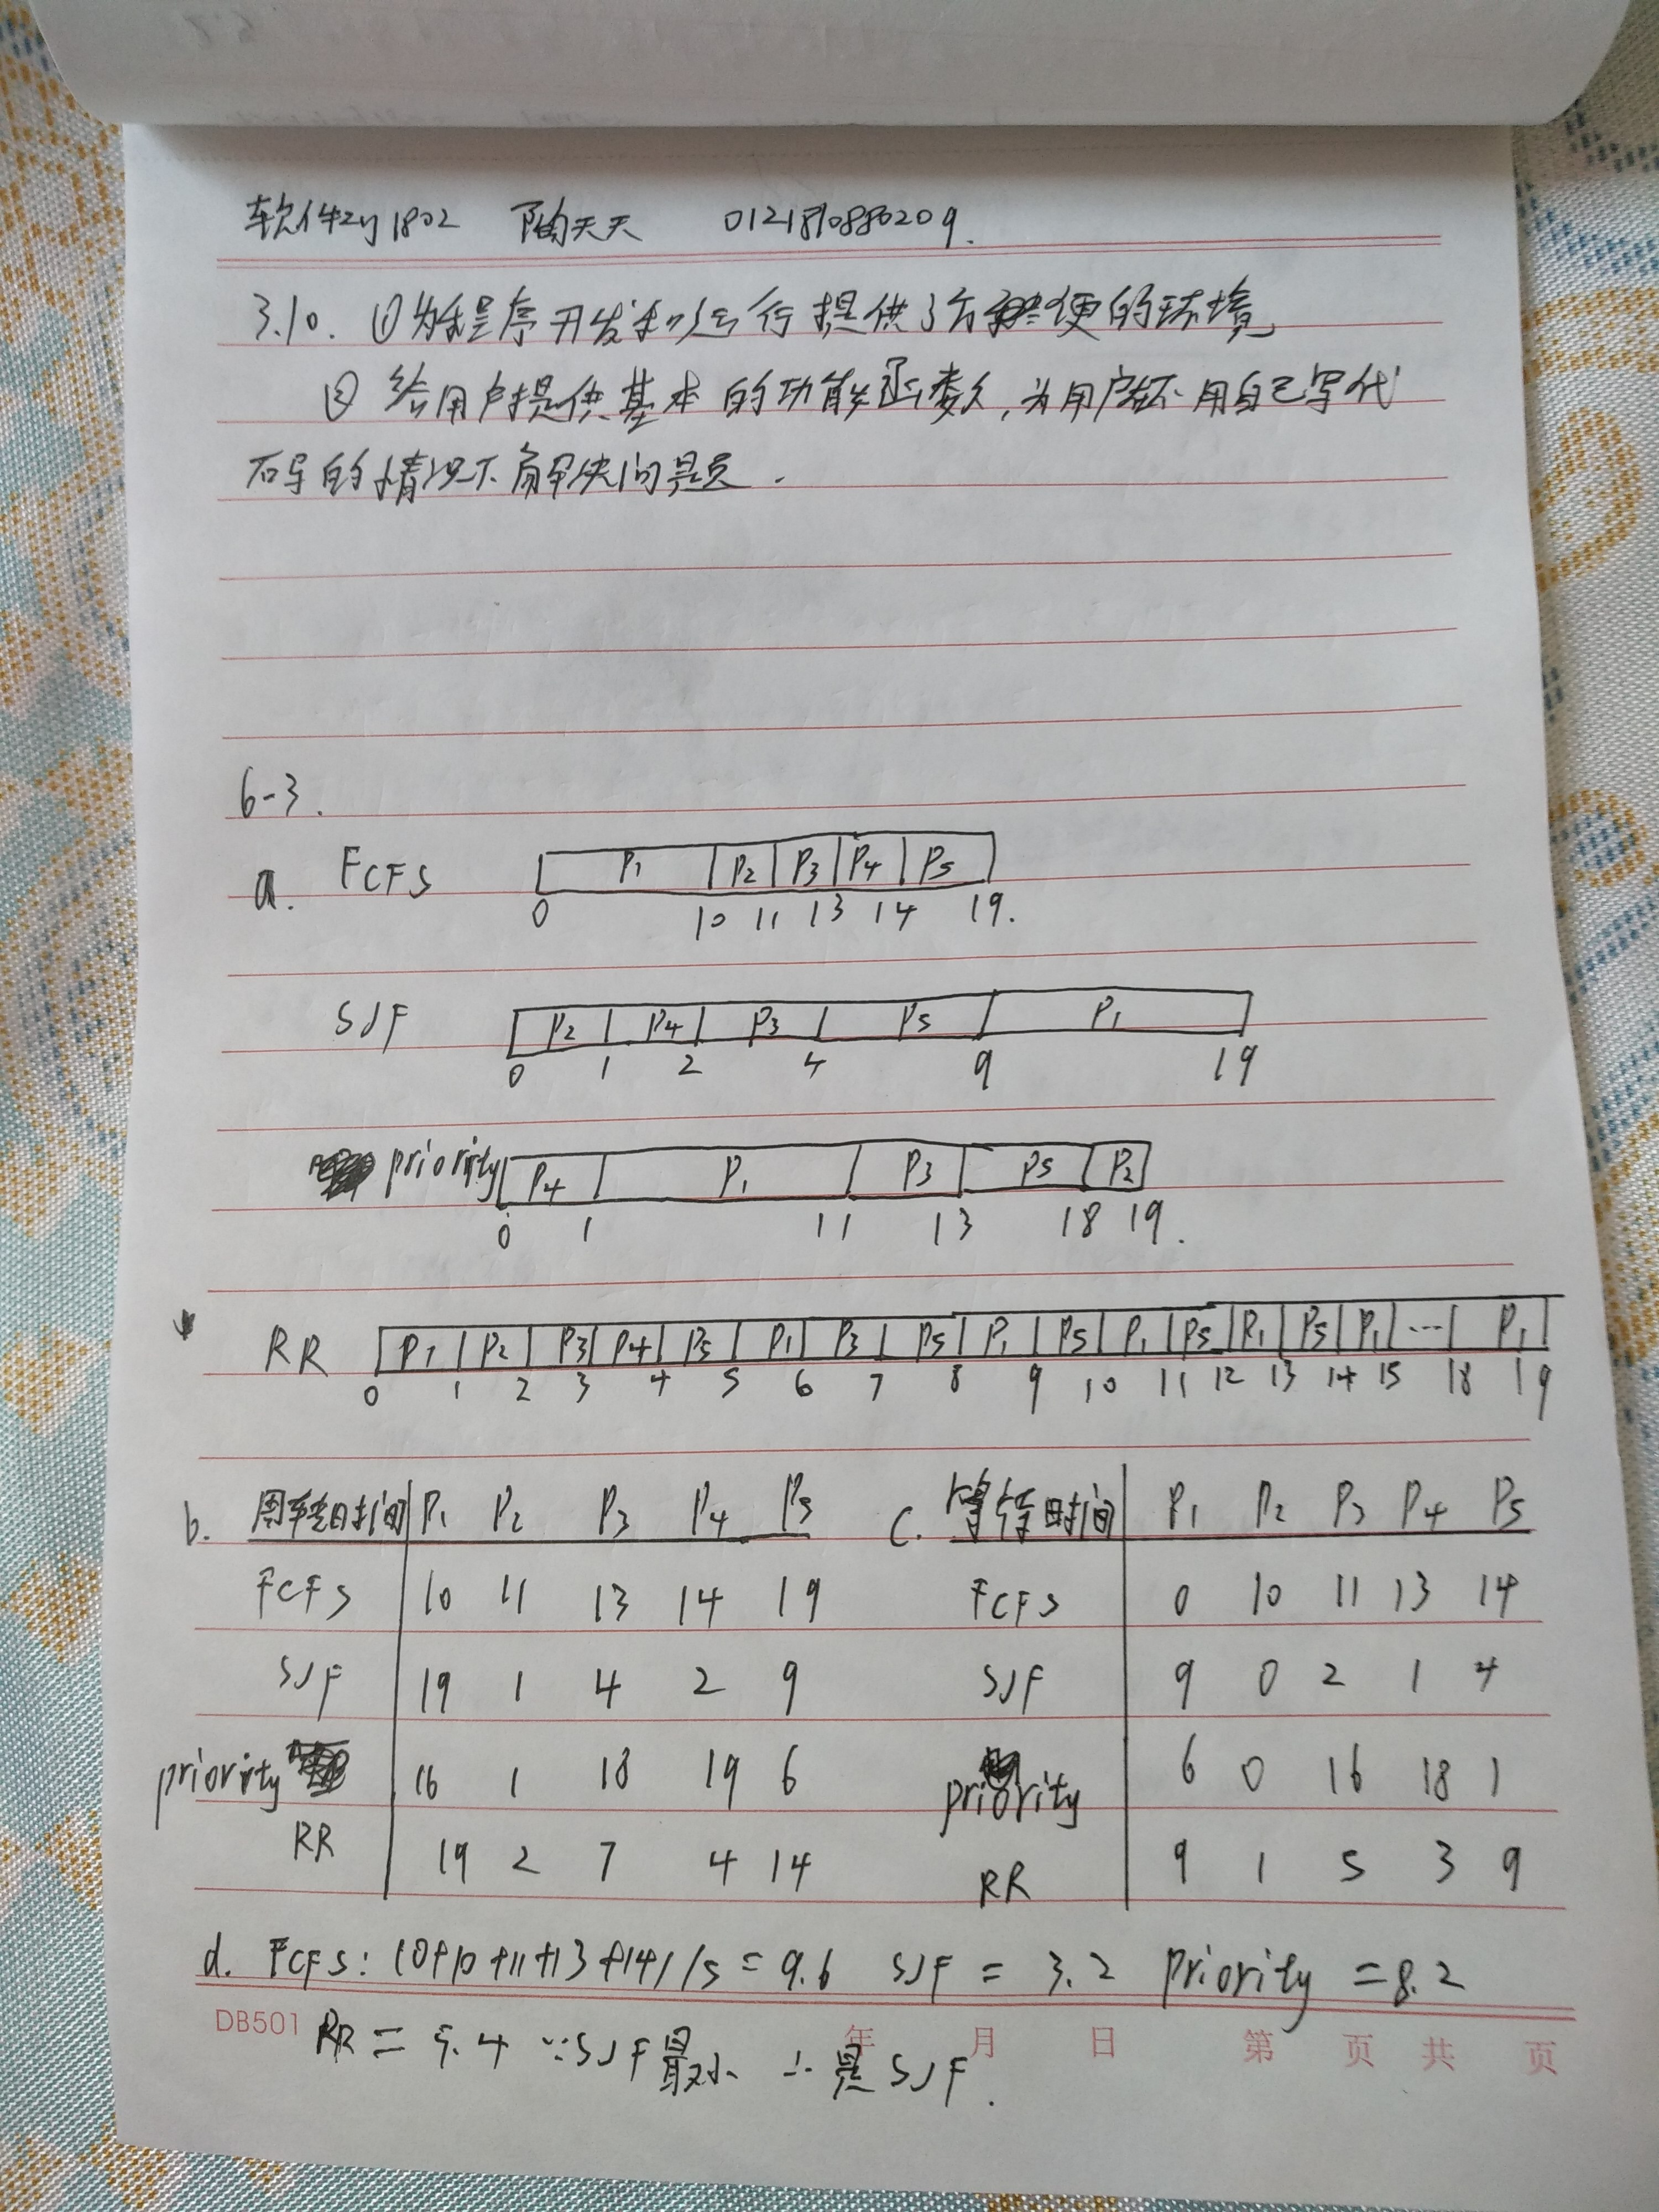 软件zy1802 陶天天 0121810880209.
3.10. ①为程序开发和运行提供了方便的环境
② 给用户提供基本的功能函数,为用户在不用自己写代
码的情况下解决问题.
6-3.
a. FCFS P1 P2 P3 P4 P5
0 10 11 13 14 19.
SJF P2 P4 P3 P5 P1
0 1 2 4 9 19
priority P4 P1 P3 P5 P2
0 1 11 13 18 19.
RR P1 P2 P3 P4 P5 P1 P3 P5 P1 P5 P1 P5 P1 P5 P1 ... P1
0 1 2 3 4 5 6 7 8 9 10 11 12 13 14 15 18 19
b. 周转时间 P1 P2 P3 P4 P5 c. 等待时间 P1 P2 P3 P4 P5
FCFS 10 11 13 14 19 FCFS 0 10 11 13 14
SJF 19 1 4 2 9 SJF 9 0 2 1 4
priority 16 1 18 19 6 priority 6 0 16 18 1
RR 19 2 7 4 14 RR 9 1 5 3 9
d. FCFS: (0+10+11+13+14)/5=9.6 SJF = 3.2 Priority =8.2
DB501 RR = 5.4 ∵SJF最小 ∴是SJF.
年 月 日 第 页 共 页